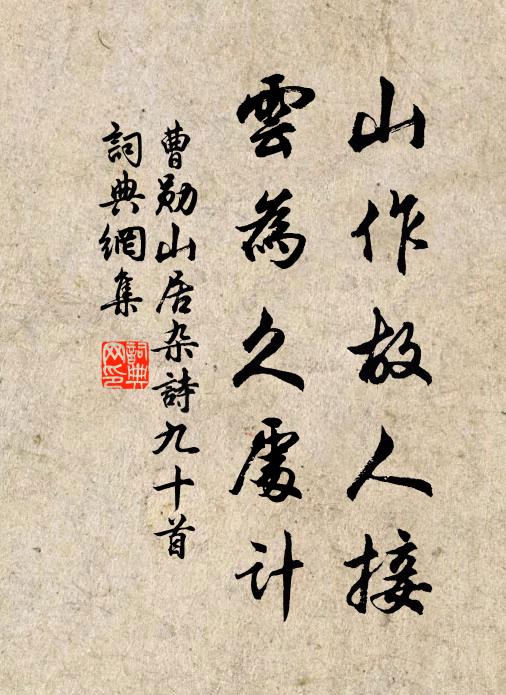 山作故人接
雲為久處計
曹勛山居杂詩九十首
詞典網集
詞典网印